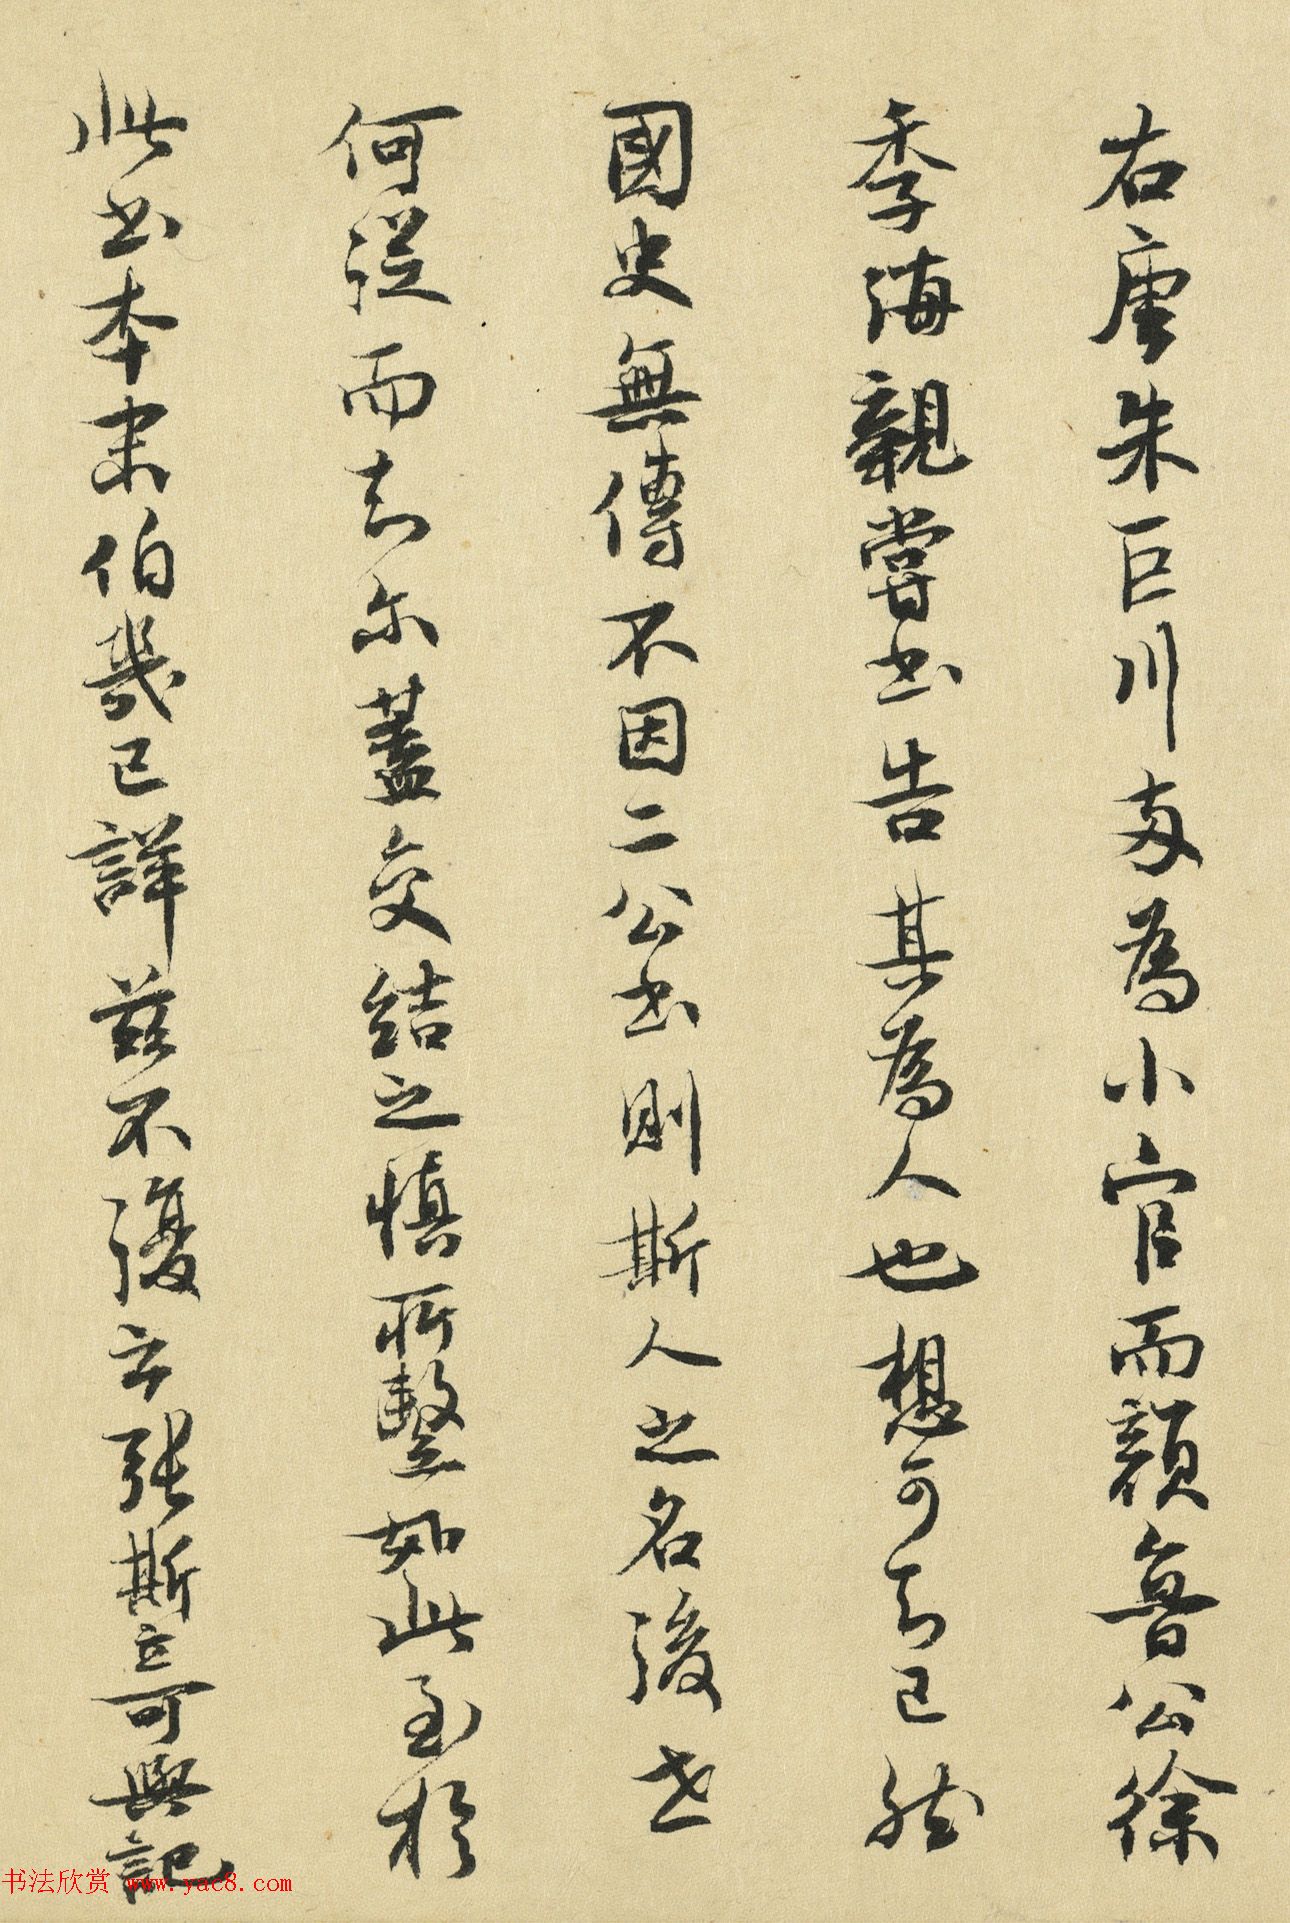 右唐朱巨川两為小官而顔魯公徐
季海親嘗書告其為人也想可知已然
國史無傳不因二公書則斯人之名後世
何從而知尔蓋交結之慎所繫如此至於
此書本末伯幾已詳茲不復云張斯立可與記
书法欣赏 www.yac8.com